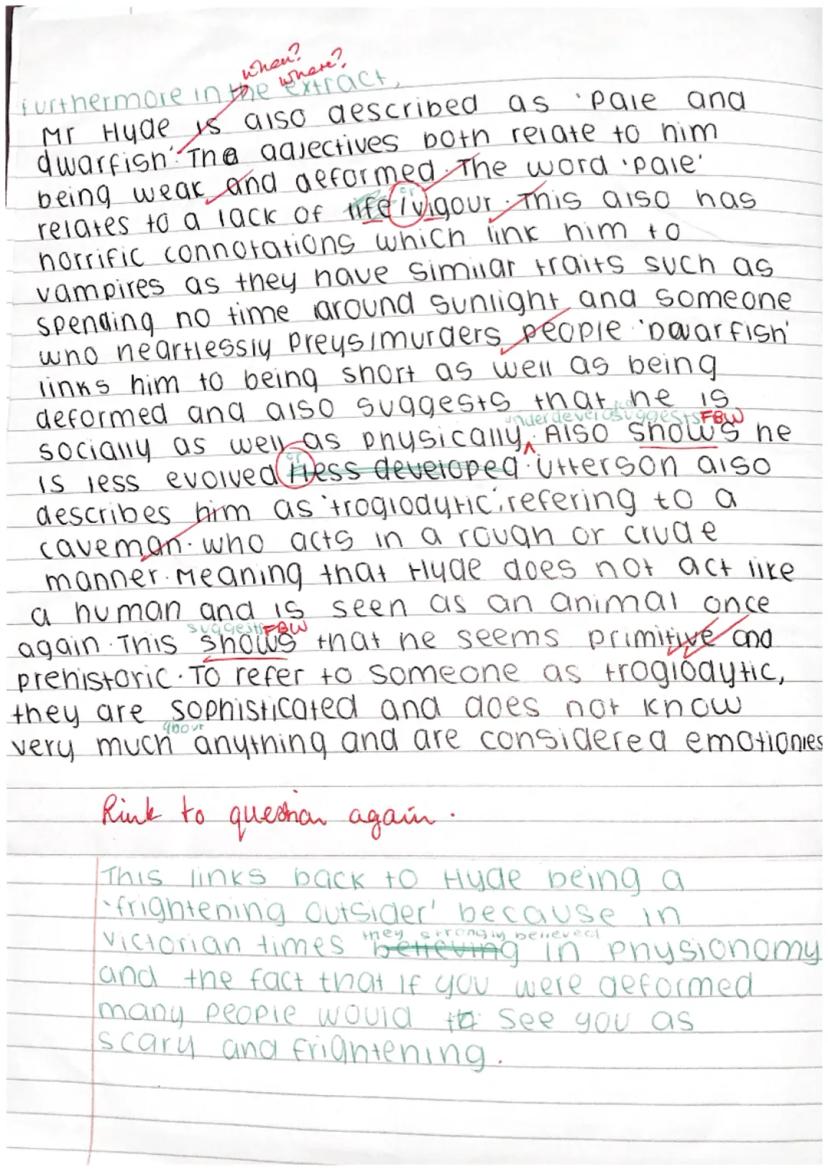 when?
where?
Furthermore in the extract,
Mr Hyde is also described as 'pale and
dwarfish'. The adjectives both relate to him
being weak and deformed. The word 'pale'
relates to a lack of life or /vigour. This also has
horrific connotations which link him to
vampires as they have similar traits such as
spending no time around sunlight and someone
who heartlessly preys/murders people 'Dwarfish'
links him to being short as well as being
deformed and also suggests that he is
underdeveloped suggests FBW
socially as well as physically ^ Also shows he
is less evolved or /less developed. Utterson also
describes him as 'troglodytic', refering to a
caveman. who acts in a rough or crude
manner. Meaning that Hyde does not act like
a human and is seen as an animal once
suggests FBW
again. This shows that he seems primitive and
prehistoric. To refer to someone as troglodytic,
they are sophisticated and does not know
about
very much anything and are considered emotionles
Link to question again.
This links back to Hyde being a
'frightening outsider' because in
they strongly believed
victorian times believing in physionomy
and the fact that if you were deformed
many people would to see you as
scary and frightening.